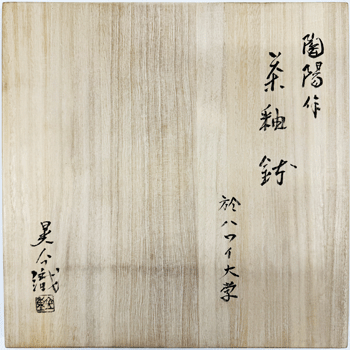 陶陽作
茶釉鉢
於ハワイ大学
晃介識